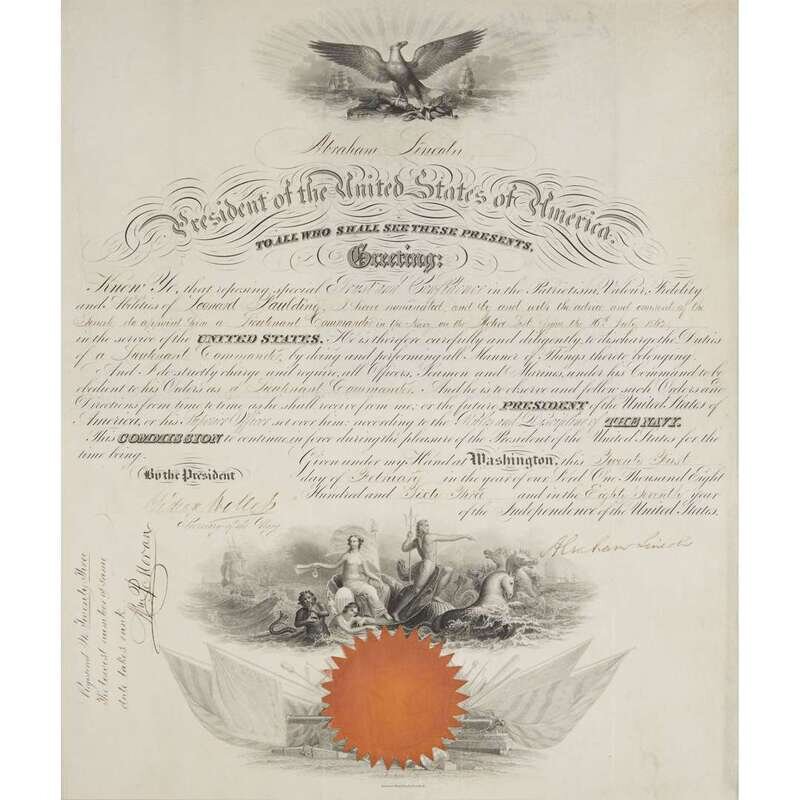 Abraham Lincoln
President of the United States of America.
TO ALL WHO SHALL SEE THESE PRESENTS,
Greeting:
Know Ye, that reposing special Trust and Confidence in the Patriotism, Valour, Fidelity
and Abilities of Leonard Paulding, I have nominated, and by and with the advice and consent of the
Senate do appoint him a Lieutenant Commander in the Navy on the Active List from the 16th July 1862
in the service of the UNITED STATES. He is therefore carefully and diligently to discharge the Duties
of a Lieutenant Commander, by doing and performing all Manner of Things thereto belonging.
And I do strictly charge and require all Officers, Seamen and Marines, under his Command to be
obedient to his Orders as a Lieutenant Commander. And he is to observe and follow such Orders and
Directions from time to time as he shall receive from me, or the future PRESIDENT of the United States of
America, or his Superior Officer set over him, according to the Rules and Discipline of THE NAVY.
This COMMISSION to continue in force during the pleasure of the President of the United States for the
time being.
Given under my Hand at Washington, this Twenty First
By the President
day of February in the year of our Lord One Thousand Eight
Hundred and Sixty Three and in the Eighty Seventh year
of the Independence of the United States.
Gideon Welles
Secretary of the Navy
Abraham Lincoln
Registered No Twenty Three
The lowest number of same
date takes rank